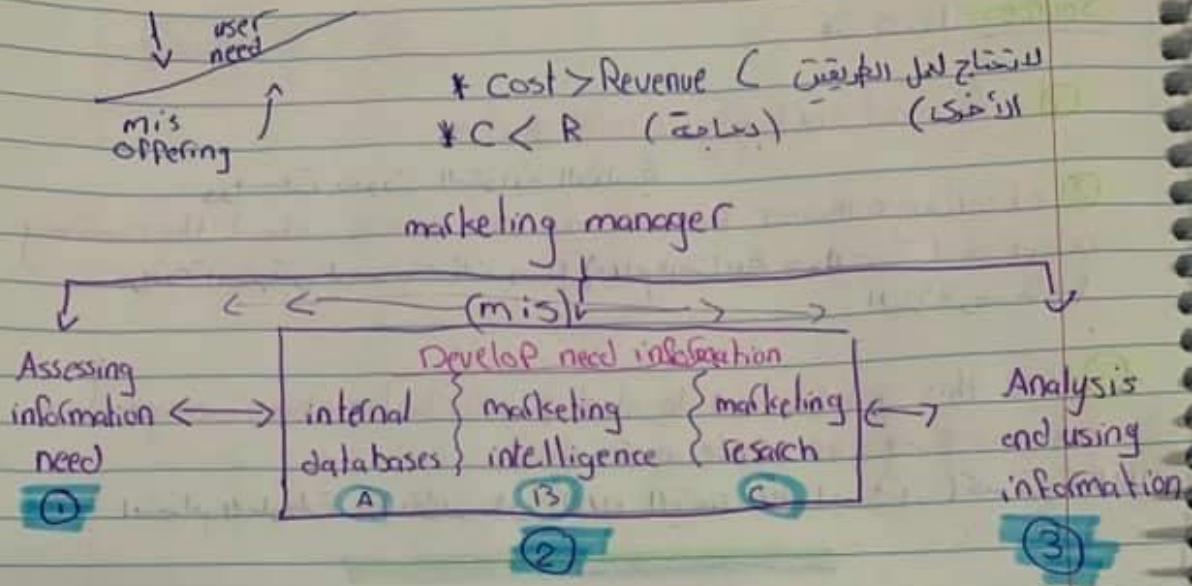 user
need
mis
offering
* Cost > Revenue ( لا تحتاج لعل الطريقتين
الأخرى)
* C < R (بحاجة)
marketing manager
(mis)
Develop need information
Assessing
information
need
①
internal
databases
A
marketing
intelligence
B
marketing
research
C
②
Analysis
end using
information
③